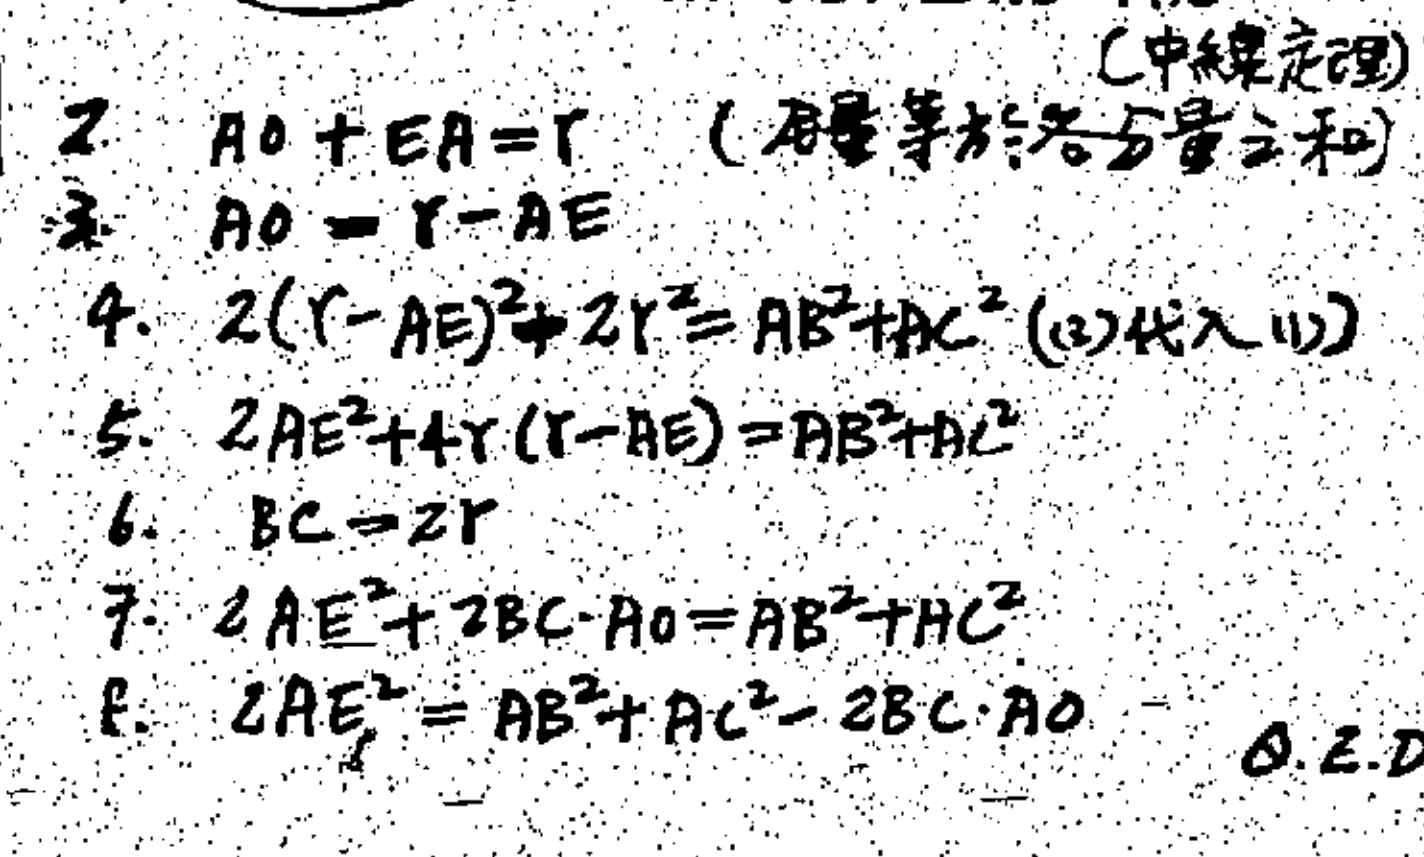 (中線定理)
2. AO + EA = r (全量等於各分量之和)
3. AO = r - AE
4. 2(r-AE)²+2r² = AB²+AC² ((3)代入(1))
5. 2AE²+4r(r-AE) = AB²+AC²
6. BC = 2r
7. 2AE²+2BC·AO = AB²+AC²
8. 2AE² = AB²+AC²-2BC·AO
Q.E.D